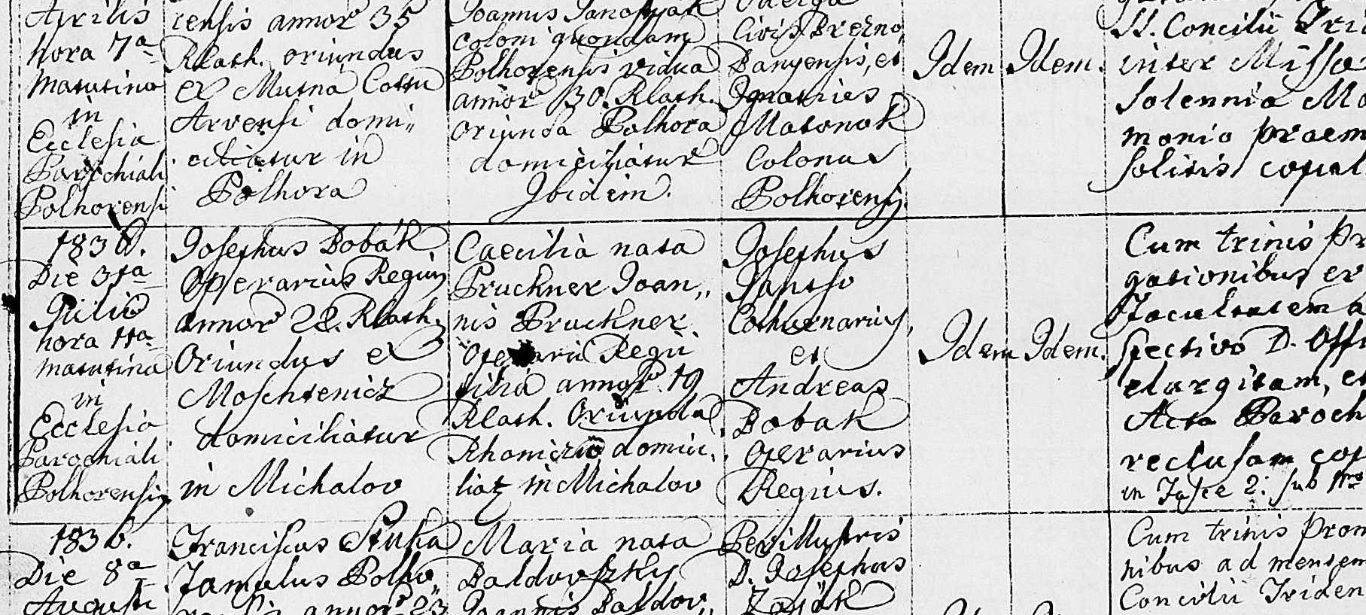 Aprilis
hora 7a
matutina
in
Ecclesia
Parochiali
Polhorensi
rensis annor 35
R. Cath. oriundus
ex Mutna Cottu
Arvensi domi„
ciliatur in
Polhora
Joannis
coloni quondam
Polhorensis vidua
annor 30. R. Cath.
oriunda Polhora
domiciliatur
Ibidem.
Civis Brezno
Banyensis, et
Ignatius
Matonok
Colonus
Polhorensis
Idem Idem.
SS. Concilii Tri
inter Missa
solennia Ma
monio praem
solitis copul
1836.
Die 31a
Julii
hora 11a
matutina
in
Ecclesia
Parochiali
Polhorensis
Josephus Bobák
Operarius Regius
annor 28. R. Cath.
Oriundus ex
Moschtenicz
domiciliatur
in Michalov
Caecilia nata
Pruckner Joan„
nis Pruckner
Operarii Regii
filia annor 19
R. Cath. Oriunda
Rhonicio domici„
liat in Michalov
Josephus
Cothurnarius
et
Andreas
Bobak
Operarius
Regius.
Idem Idem.
Cum trinis Pr
gationibus er
Facultatem a
spectivo D. Offi
elargitam, et
Acta Paroch
reclusam cop
in Fasce 2. sub Nro
1836.
Die 8a
Augusti
Franciscus Stuha
Famulus Polho„
annor 23
Maria nata
Baldovszky
Joannis Baldov„
Perillustris
D. Josephus
Cum trinis Prom
nibus ad mensem
Concilii Triden